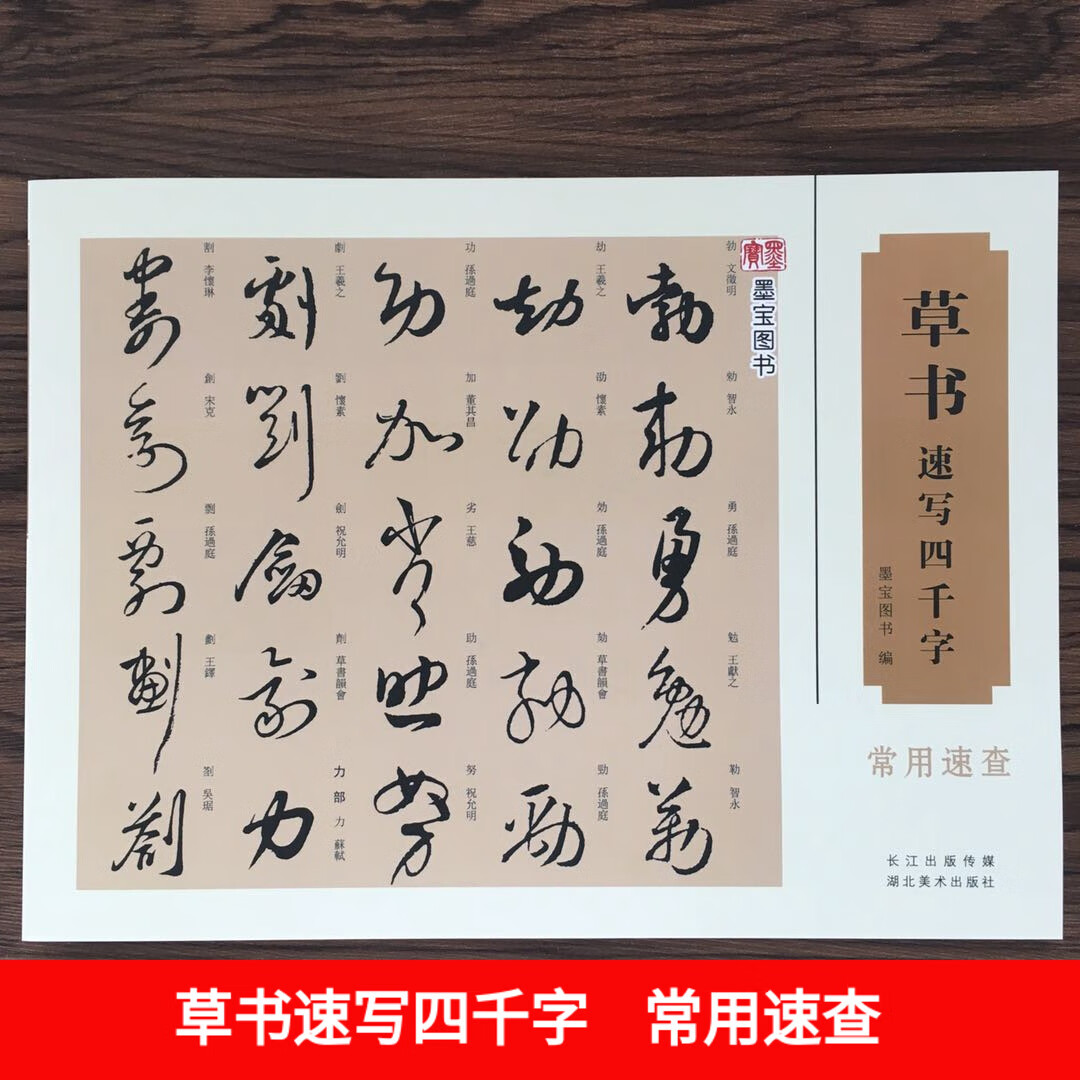 草书
速写四千字
墨宝图书 编
常用速查
长江出版传媒
湖北美术出版社
墨寶
墨宝图书
割
割 李懷琳
創
創 宋克
剽
剽 孫過庭
劃
劃 王鐸
劄
劄 吳琚
劇
劇 王羲之
劉
劉 懷素
劍
劍 祝允明
劑
劑 草書韻會
力
力部 力 蘇軾
功
功 孫過庭
加
加 董其昌
劣
劣 王慈
助
助 孫過庭
努
努 祝允明
劫
劫 王羲之
劭
劭 懷素
効
効 孫過庭
劾
劾 草書韻會
勁
勁 孫過庭
勃
勃 文徵明
勅
勅 智永
勇
勇 孫過庭
勉
勉 王獻之
勒
勒 智永
草书速写四千字 常用速查